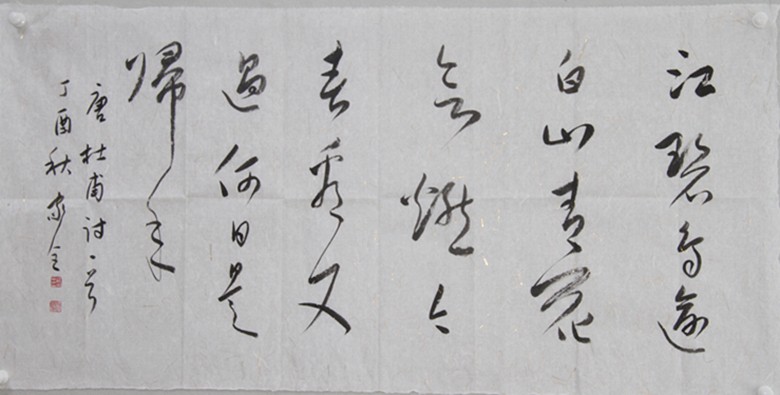 江碧鳥逾
白山青花
欲燃今
春看又
過何日是
歸年
唐杜甫詩一首
丁酉秋家全